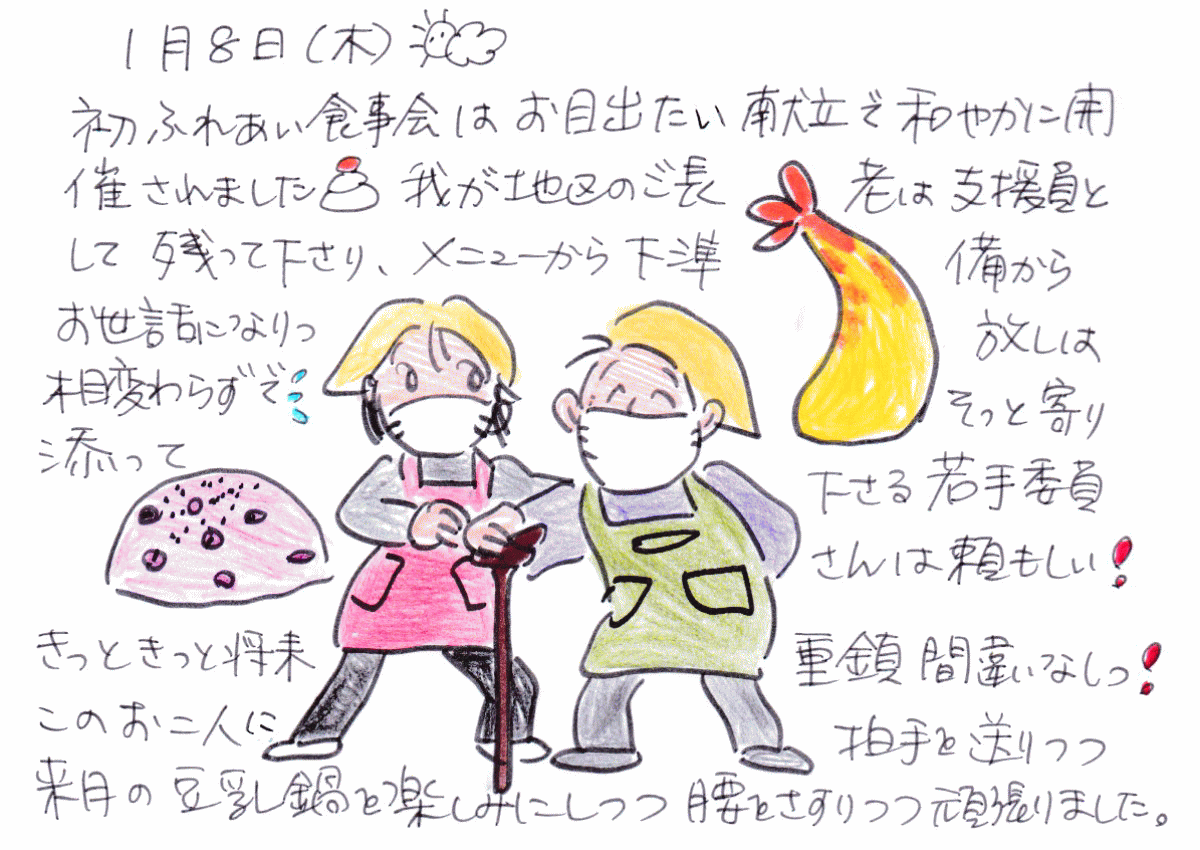 1月8日(木)
初ふれあい食事会はお目出たい献立で和やかに開
催されました 我が地区のご長老は支援員と
して残って下さり、メニューから下準備から
お世話になりっ放しは
相変わらずで そっと寄り
添って 下さる若手委員
さんは頼もしい!
きっときっと将来 重鎮間違いなしっ!
このお二人に 拍手を送りつつ
来月の豆乳鍋を楽しみにしつつ腰をさすりつつ頑張りました。